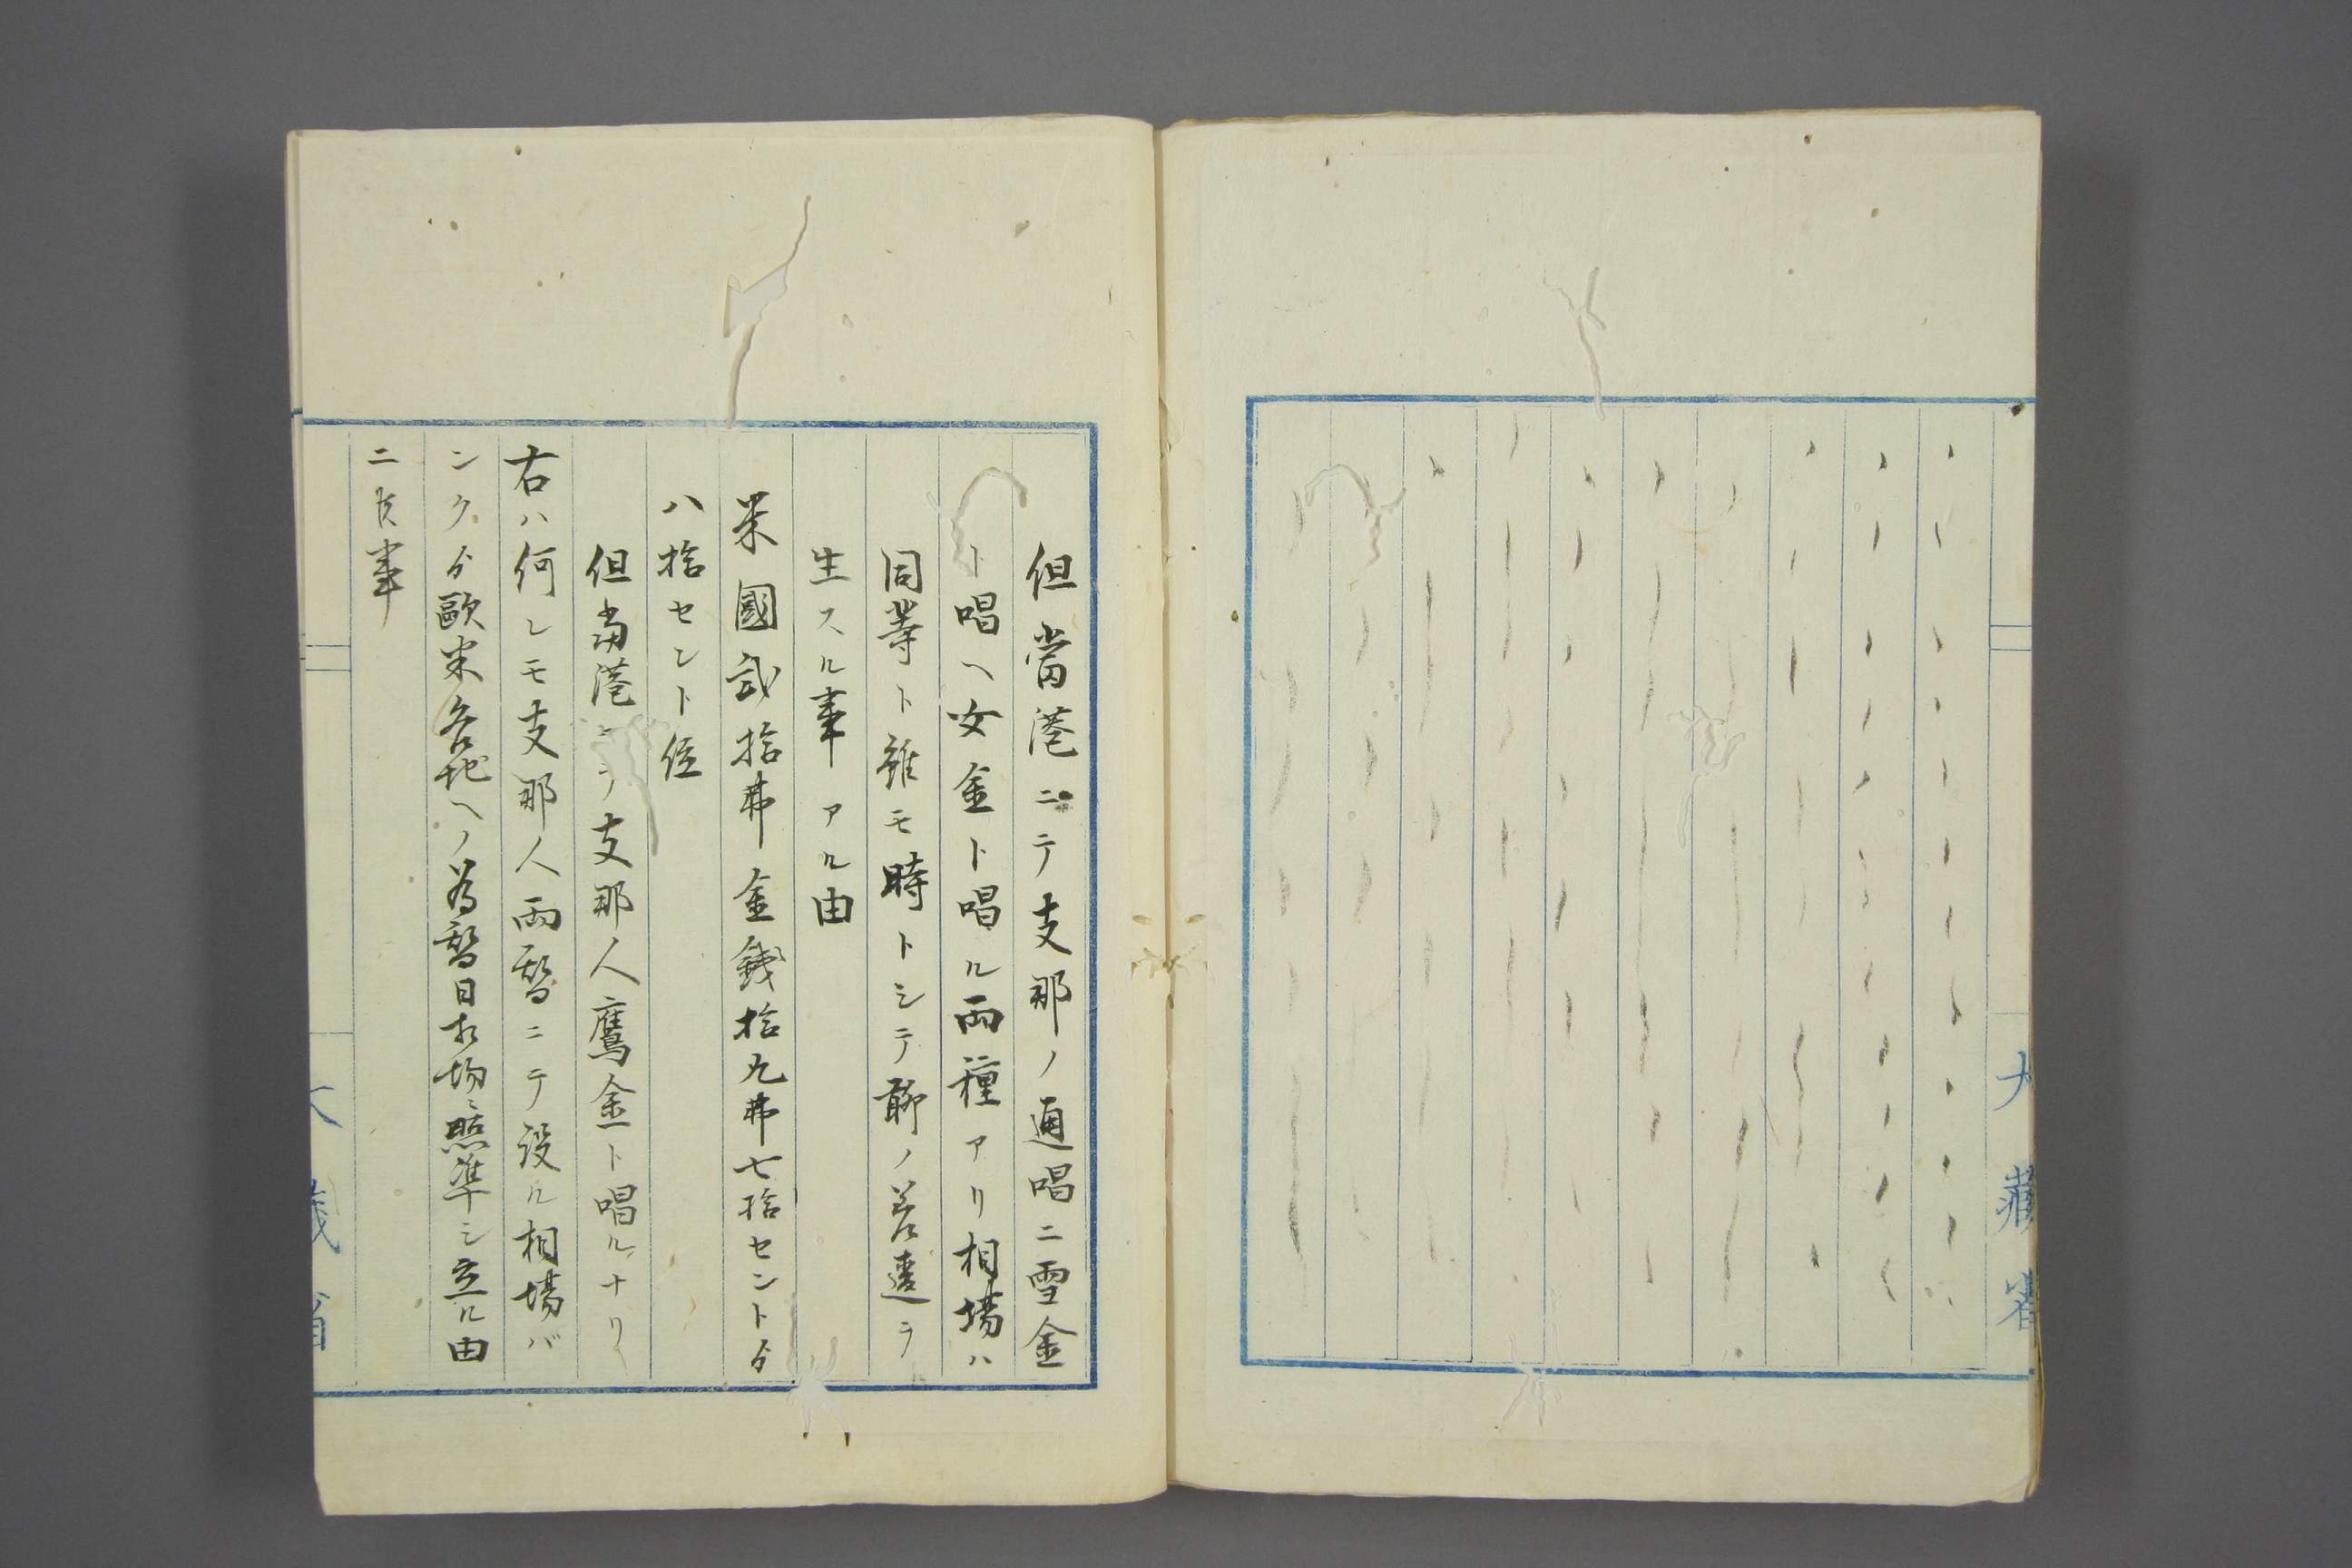 大藏省
但當港ニテ支那ノ通唱ニ雪金
ト唱ヘ女金ト唱ル両種アリ相場ハ
同等ト雖モ時トシテ聊ノ差違ヲ
生スル事アル由
米國弐拾弗金錢拾九弗七拾セントゟ
八拾セント位
但當港ニテノ支那人鷹金ト唱ルナリ
右ハ何レモ支那人両替ニテ設ル相場バ
ンクゟ歐米各地ヘノ為替日相場ニ照準シ立ル由
ニ候事
大藏省